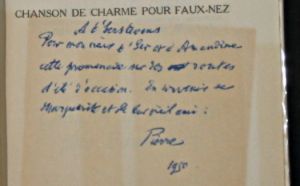 CHANSON DE CHARME POUR FAUX-NEZ
A t'Serstevens
Pour mon vieux t'Ser et Amandine
cette promenade sur des routes
d'été d'occasion. En souvenir de
Marguerite et de leur vieil ami :
Pierre
1950.